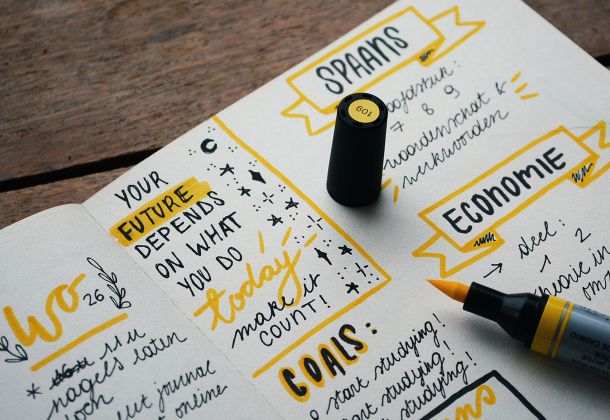 SPAANS
7 8 9
woordenschat &
werkwoorden
109
YOUR
FUTURE
DEPENDS
ON WHAT
YOU DO
today
make it
COUNT!
ECONOMIE
→ deel:
1 2
GOALS:
start studying!
start studying!
studying!
Wo 26
* 11u
nagels laten
journal
online
DE CADMIO